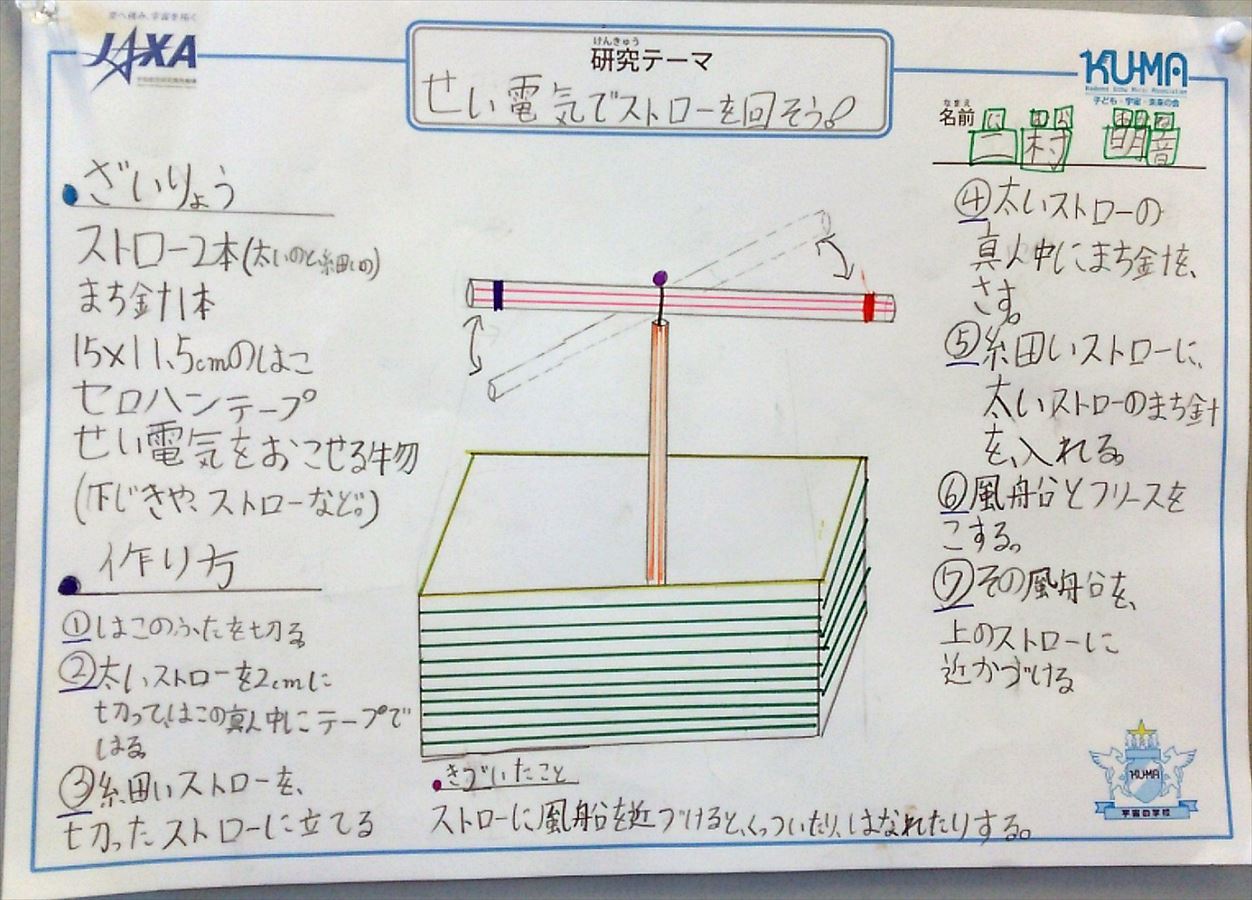 JAXA
けんきゅう
研究テーマ
せい電気でストローを回そう!
KU-MA
子ども・宇宙・未来の会
なまえ
名前
ざいりょう
ストロー2本(太いのと細いの)
まち針1本
15×11.5cmのはこ
セロハンテープ
せい電気をおこせる物
(下じきや、ストローなど。)
作り方
①はこのふたを切る。
②太いストローを2cmに
切って、はこの真ん中にテープで
はる。
③細いストローを、
切ったストローに立てる
④太いストローの
真ん中にまち針を、
さす。
⑤細いストローに、
太いストローのまち針
を、入れる。
⑥風船とフリースを
こする。
⑦その風船を、
上のストローに
近かづける
きづいたこと
ストローに、風船を近づけると、くっついたり、はなれたりする。
KU-MA
宇宙の学校